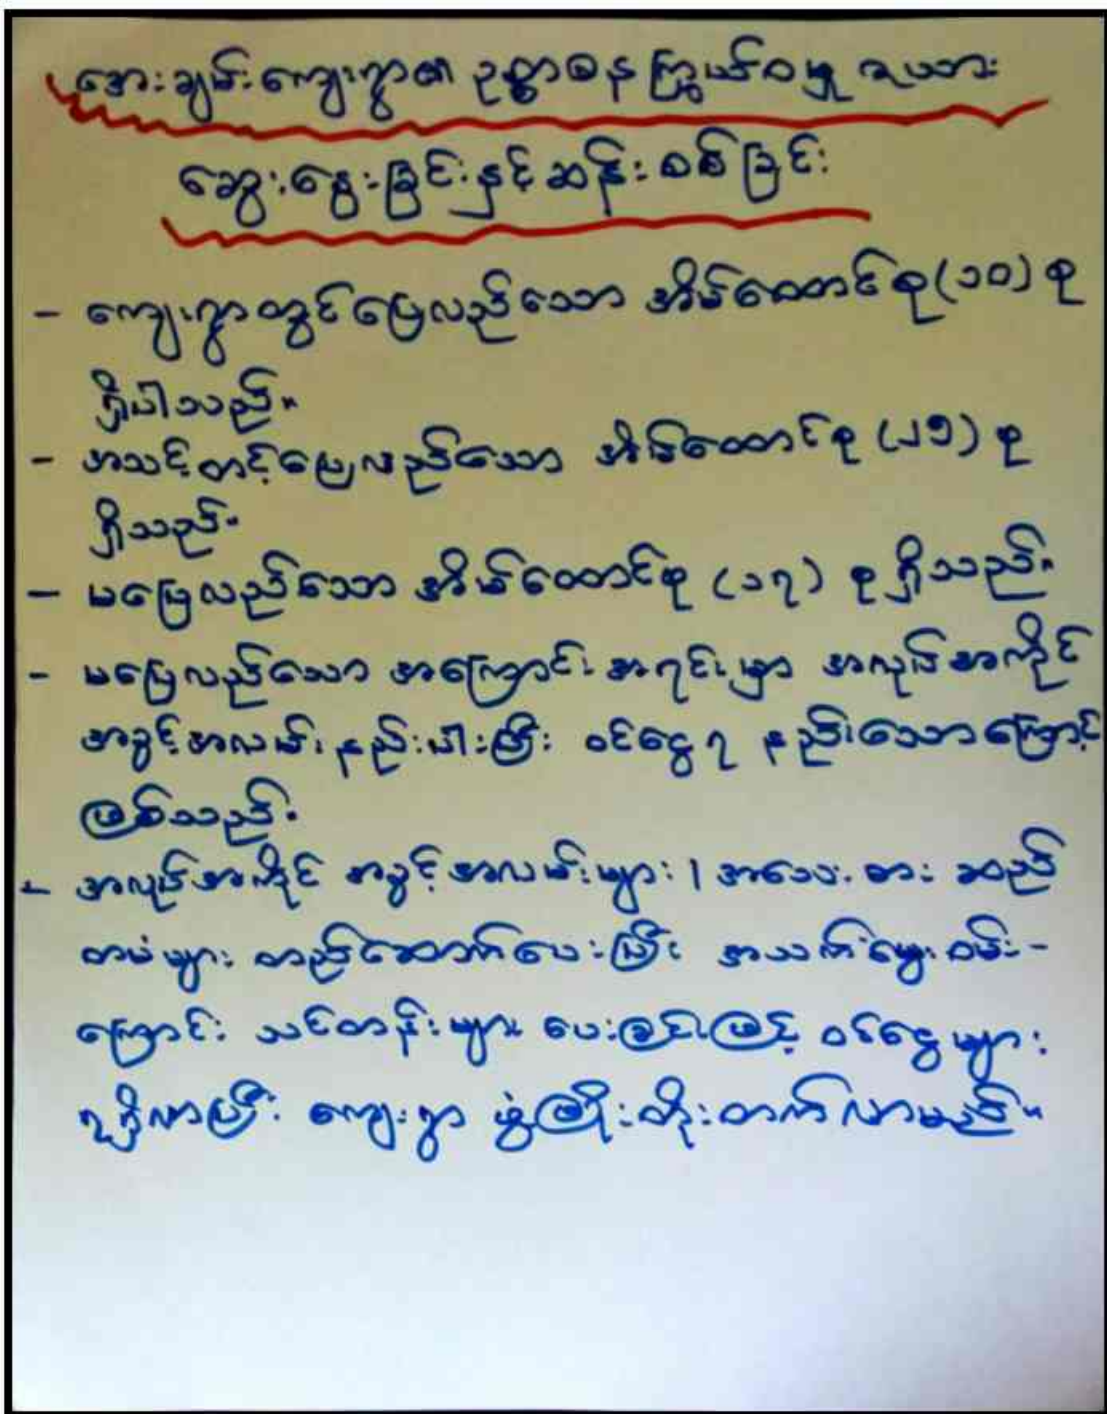 အေးချမ်းကျေးရွာ၏ ဥစ္စာဓန ကြွယ်ဝမှု ဇယား
ဆွေးနွေးခြင်းနှင့်ဆန်းစစ်ခြင်း
- ကျေးရွာတွင်ပြေလည်သော အိမ်ထောင်စု(၁၀)စု
ရှိပါသည်။
- အသင့်တင့်ပြေလည်သော အိမ်ထောင်စု (၂၅) စု
ရှိသည်။
- မပြေလည်သော အိမ်ထောင်စု (၁၇) စု ရှိသည်။
- မပြေလည်သော အကြောင်းအရင်းမှာ အလုပ်အကိုင်
အခွင့်အလမ်း နည်းပါးပြီး ဝင်ငွေရ နည်းသောကြောင့်
ဖြစ်သည်။
- အလုပ်အကိုင် အခွင့်အလမ်းများ၊ အသေးစား ဆည်
တမံများ တည်ဆောက်ပေးပြီး အသက်မွေးဝမ်း-
ကြောင်း သင်တန်းများ ပေးခြင်းဖြင့် ဝင်ငွေများ
ရရှိလာပြီး ကျေးရွာ ဖွံ့ဖြိုးတိုးတက်လာမည်။